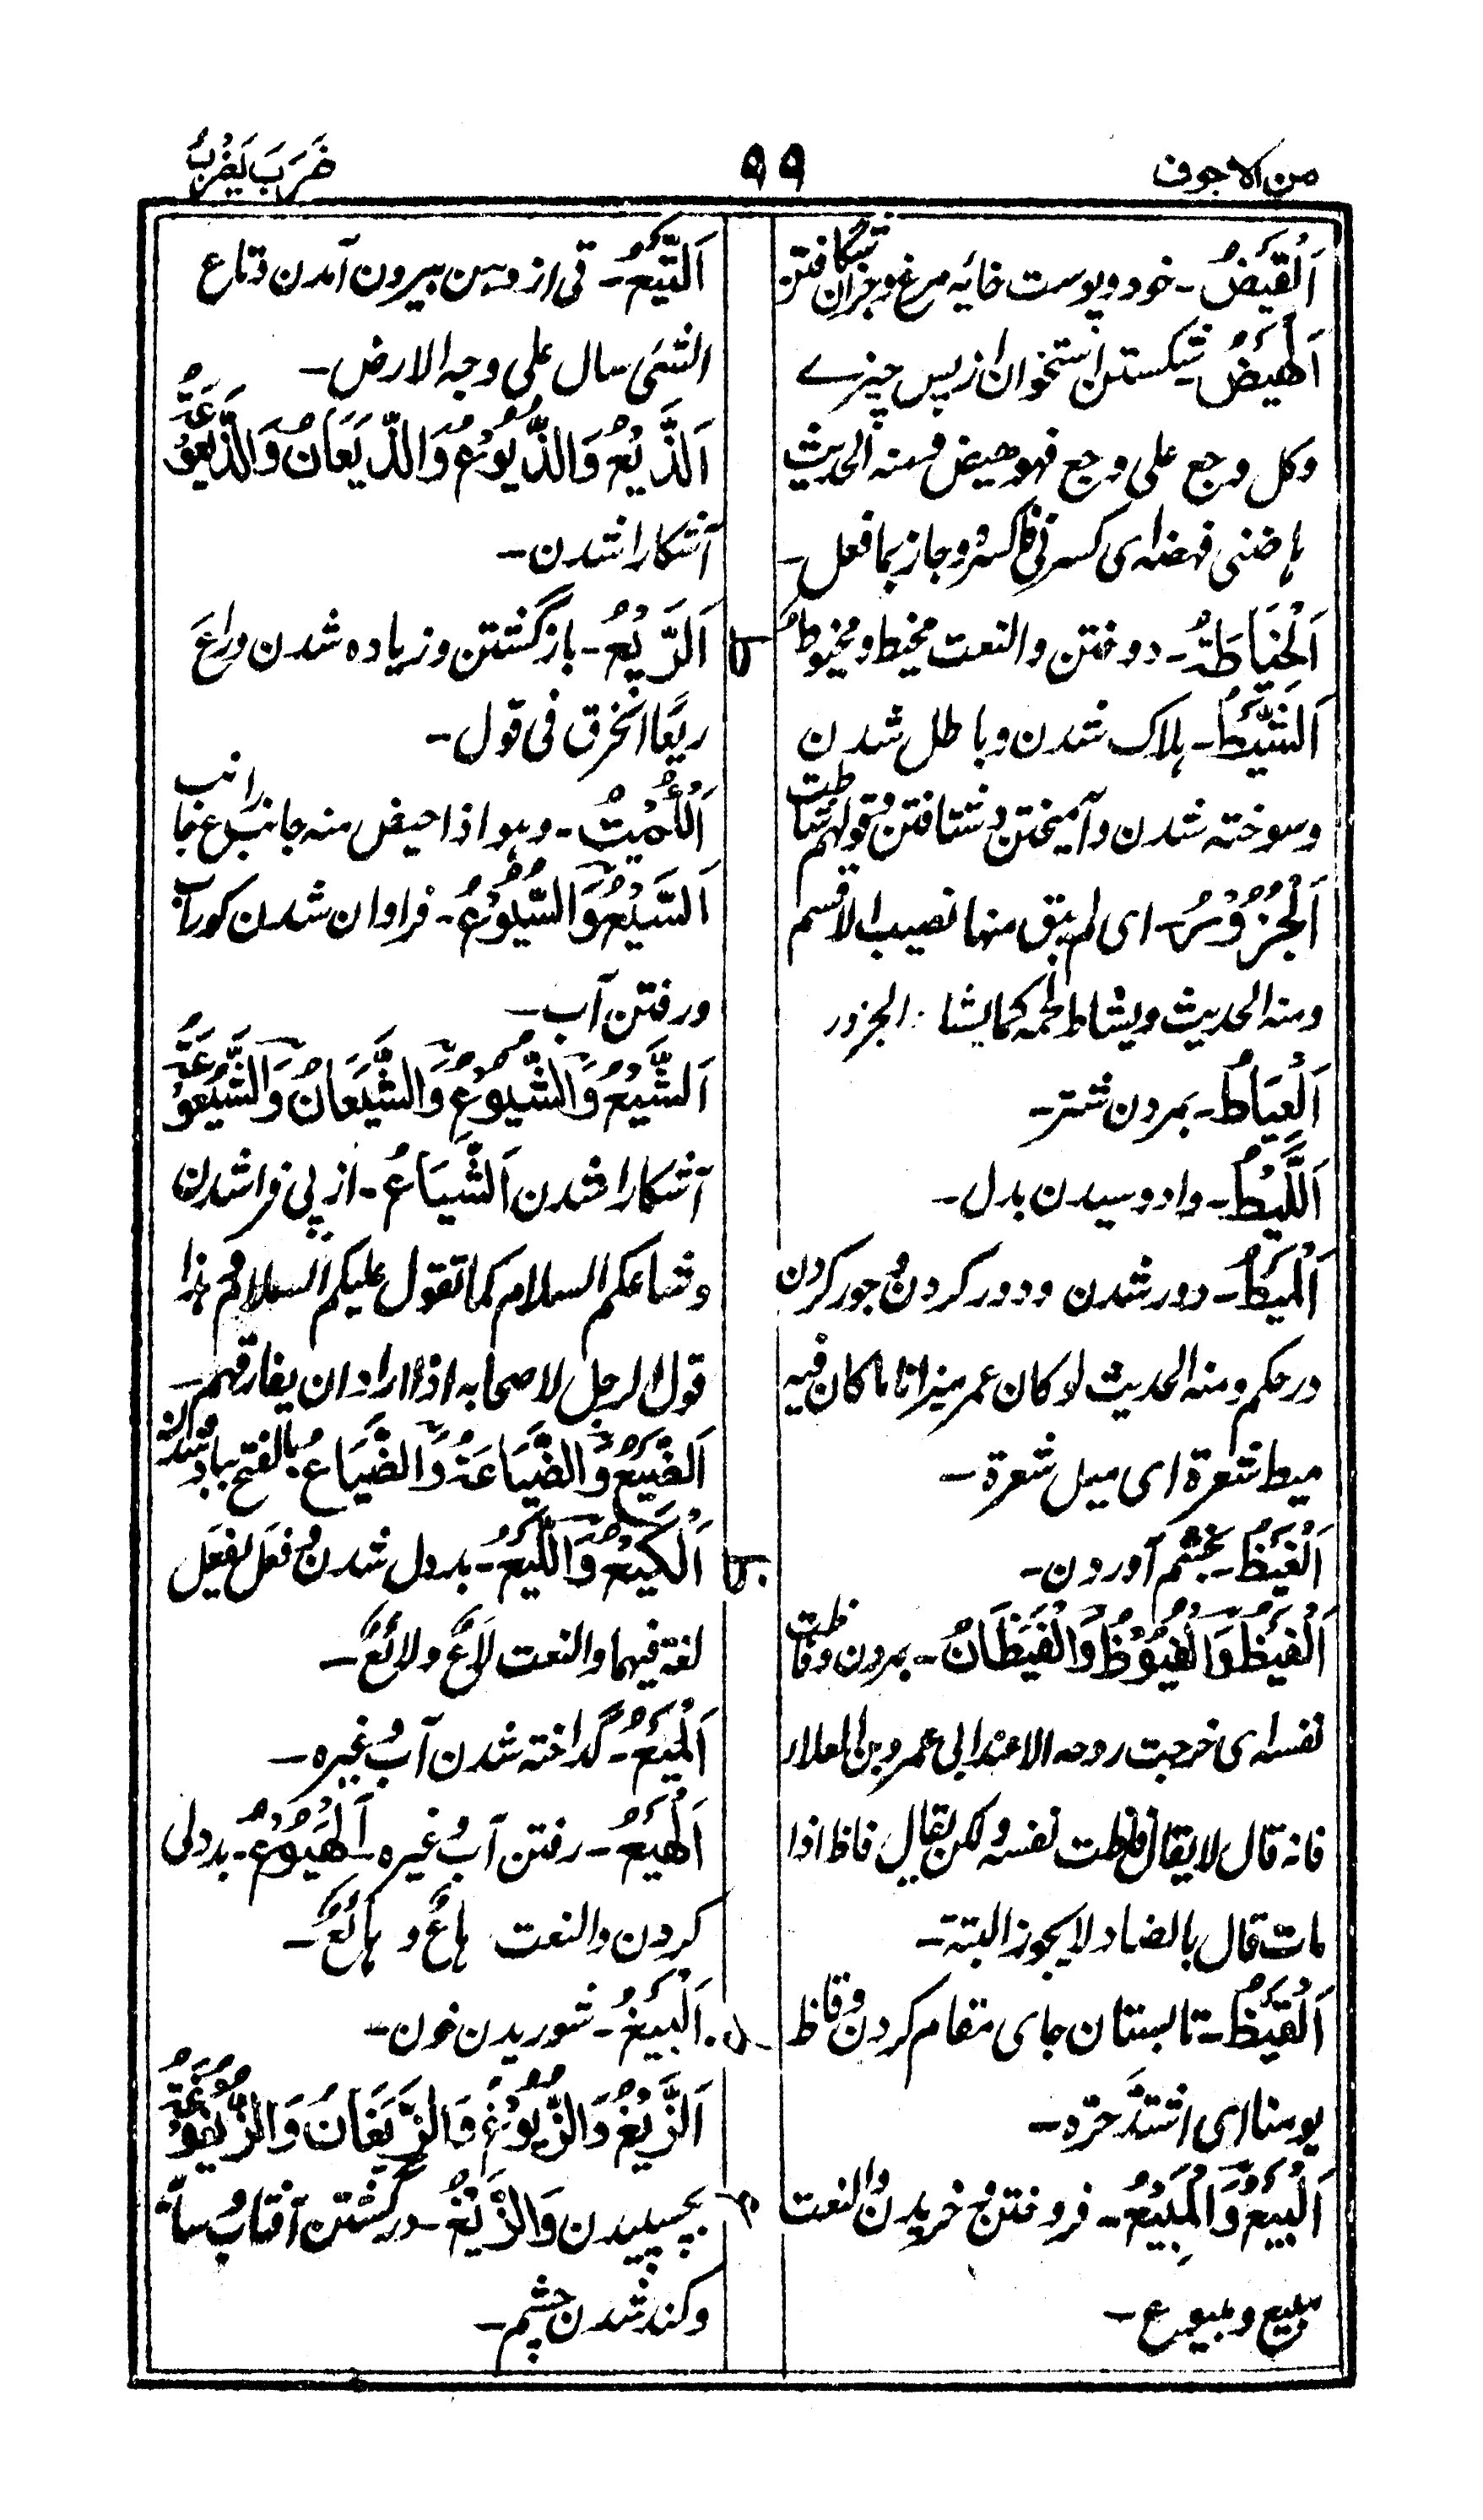 من الاجوف
٩٩
ضَرَبَ يَضْرِبُ
اَلْقَيْضُ۔ خود و پوست خایه مرغ و جزآن شگافتن
اَلْهَيْضُ شکستن استخوان از پس چیزے
وکل وجع علی وجع فهو هیض و منه الحدیث
هاضنی فهضه ای کسرنی فاکسره وجاز بما فعل۔
اَلْخِيَاطَةُ۔ دوختن والنعت مخیط و مخیوط
اَلشَّيْطُ۔ ہلاک شدن و باطل شدن
وسوخته شدن و آمیختن و شتافتن و قولهم شاطت
اَلْجُزُوْرُ۔ ای لم یبق منها نصیب الا قسم
ومنه الحدیث ویشاط لحمه کما یشاط الجزور
اَلْعِيَاطُ۔ بمردن شتر۔
اَللَّيْطُ۔ وادوسیدن بدل۔
اَلْمَيْطُ۔ دور شدن ودور کردن و جور کردن
در حکم و منه الحدیث لو کان عمر میزانا ما کان فیه
میط شعرة ای میل شعرة۔
اَلْغَيْظُ۔ بخشم آوردن۔
اَلْفَيْظُ وَالْفُيُوْظُ وَالْفَيَظَانُ۔ بمردن وفاظت
نفسه ای خرجت روحه الا عند ابی عمرو بن العلاء
فانه قال لایقال فاظت نفسه ولکن یقال فاظ اذا
مات قال بالضاد لا یجوز البتة۔
اَلْقَيْظُ۔ تابستان جای مقام کردن وقاظ
یومنا ای اشتدّ حرّه۔
اَلْبَيْعُ وَالْمَبِيْعُ۔ فروختن و خریدن والنعت
مبیع و مبیوع۔
اَلتَّيْعُ۔ قی از دہن بیرون آمدن وتاع
الشئ سال علی وجه الارض۔
اَلذَّيْعُ وَالذُّيُوْعُ وَالذَّيَعَانُ وَالذَّيْعُوْعَةُ
آشکارا شدن۔
اَلرَّيْعُ۔ بازگشتن و زیاده شدن وراعَ
ریعًا انخرق فی قول۔
وہو اذا حیض منه جانب راع جانب
اَلسَّيْعُ وَالسُّيُوْعُ۔ فراوان شدن
ورفتن آب۔
اَلشَّيْعُ وَالشُّيُوْعُ وَالشَّيَعَانُ وَالشَّيْعُوْعَةُ
آشکارا شدن اَلشِّيَاعُ۔ از پی فراشدن
وشاعکم السلام کما تقول علیکم السلام و ہذا
قول الرجل لاصحابه اذا اراد ان یفارقهم۔
اَلضَّيْعُ وَالضَّيَاعَةُ وَالضَّيَاعُ بالفتح
اَلْكَيْعُ وَاللَّيْعُ۔ بددل شدن و فَعِلَ یَفْعَلُ
لغة فیهما والنعت لاعٌ ولائعٌ۔
اَلْمَيْعُ۔ گداخته شدن آب و غیره۔
اَلْهَيْعُ۔ رفتن آب و غیره اَلْهُيُوْعُ۔ بددلی
کردن والنعت هاعٌ و هائعٌ۔
اَلْبَيْغُ۔ شوریدن خون۔
اَلزَّيْغُ وَالزُّيُوْغُ وَالزَّيَغَانُ وَالزَّيْغُوْغَةُ
بچسپیدن وَالزَّيْغُ۔ درگشتن آفتاب و سایہ
وکند شدن چشم۔